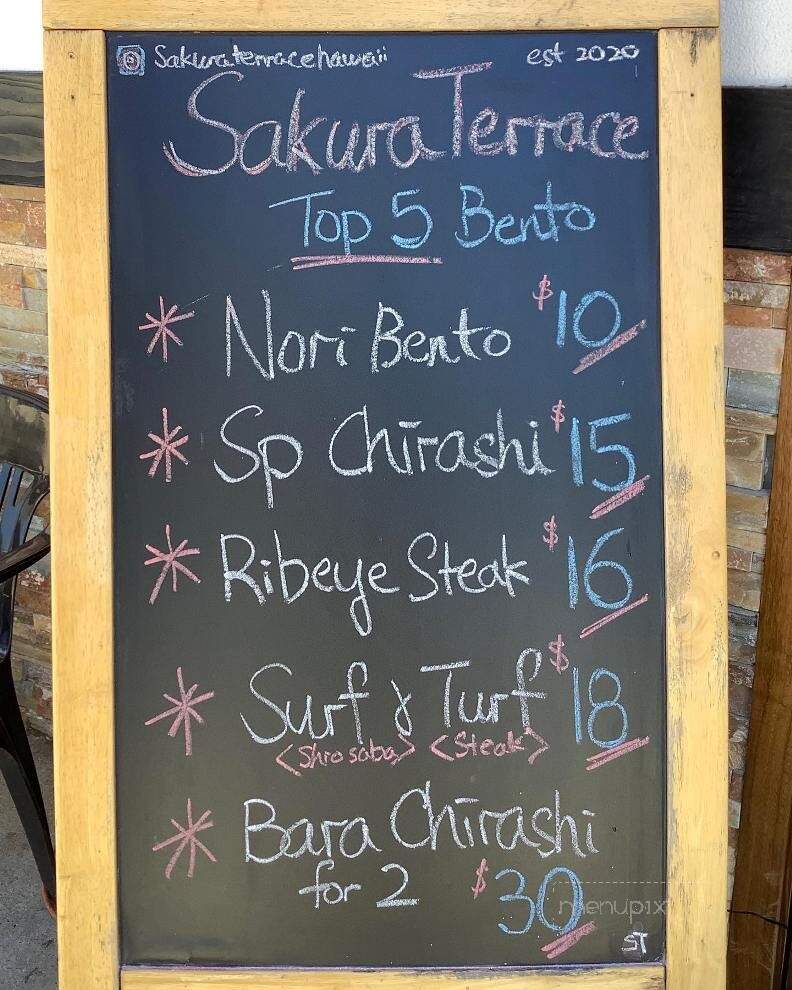 Sakuraterracehawaii est 2020
Sakura Terrace
Top 5 Bento
* Nori Bento $10
* Sp Chirashi $15
* Ribeye Steak $16
* Surf & Turf $18
<Shio saba> <Steak>
* Bara Chirashi
for 2 $30
menupix
ST